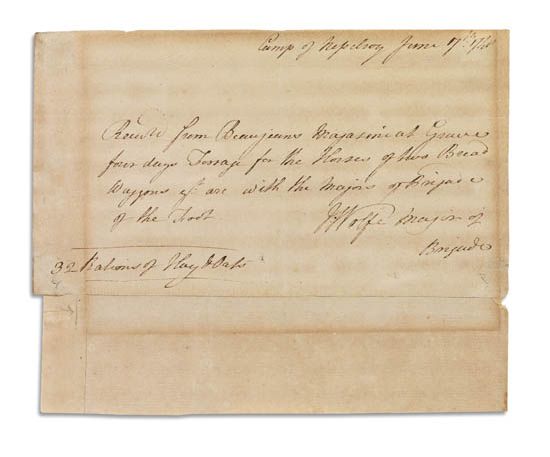 Camp of Nepelroy June 17th 1748
Receiv'd from Beaujeans Magasine at Grave
four days Forrage for the Horses of two Bread
Waggons yt are with the Majors of Brigade
of the Foot.
JWolfe Major of
Brigade
32 Rations of Hay & Oats